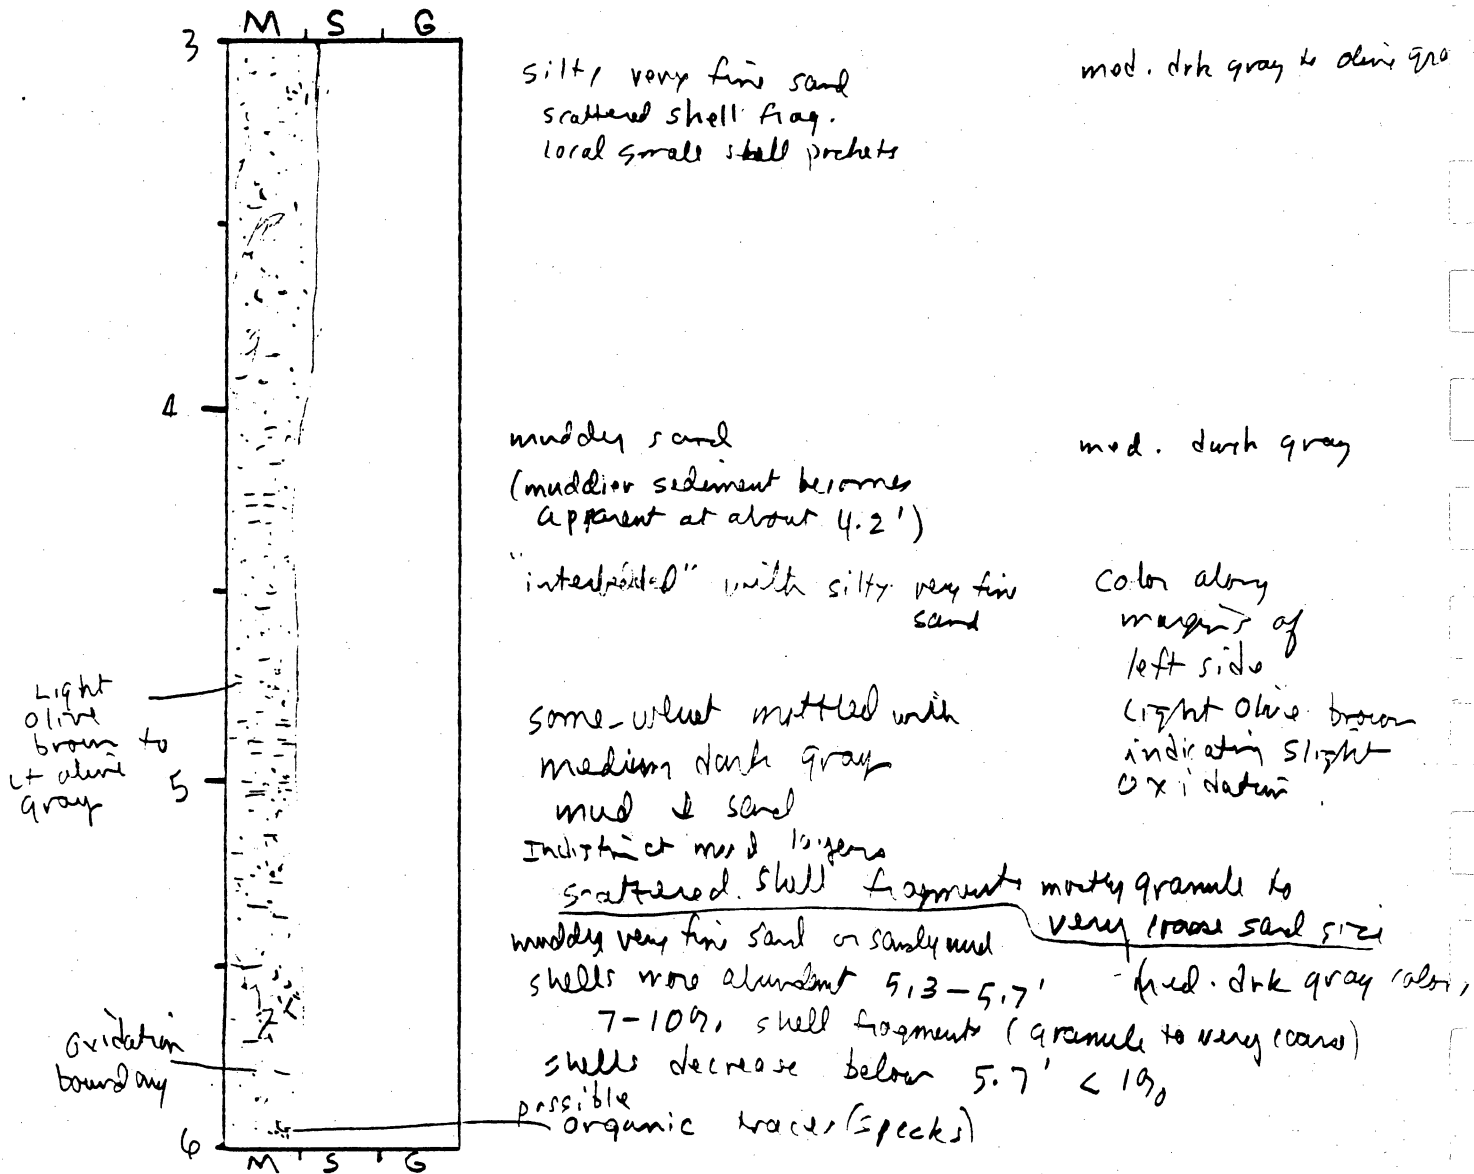 M S G
3
silty very fine sand
scattered shell frag.
local small shell pockets
mod. drk gray to olive gra
4
muddy sand
(muddier sediment becomes
apparent at about 4.2')
med. dark gray
"interbedded" with silty very fine
sand
color along
margins of
left side
light olive brown
indicating slight
oxidation.
Light
olive
brown to
Lt olive
gray
5
some-what mottled with
medium dark gray
mud & sand
Indistinct mud layers
scattered shell fragments mostly granule to
very coarse sand size
muddy very fine sand or sandy mud
shells more abundant 5.3-5.7'
med. drk gray color,
7-10% shell fragments (granule to very coarse)
shells decrease below 5.7' < 1%
oxidation
boundary
possible
organic traces (specks)
6
M S G